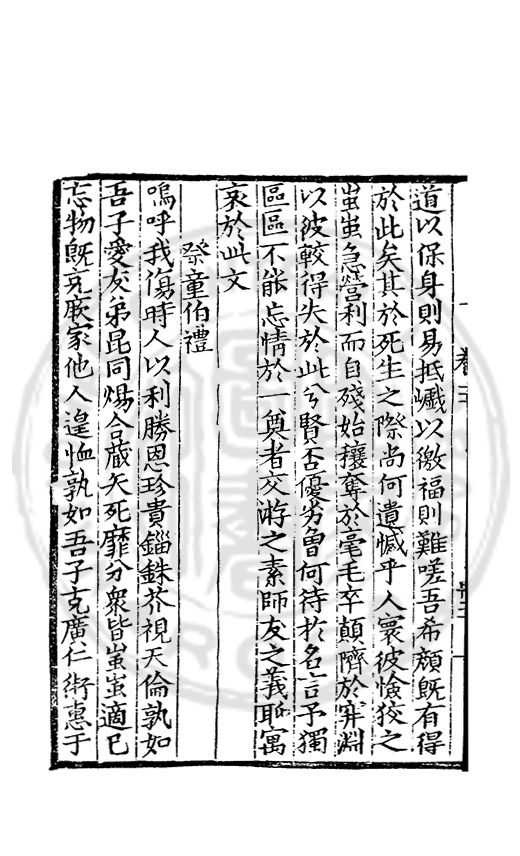 道以保身則易抵巇以徼福則難嗟吾希顏旣有得
於此矣其於死生之際尚何遺憾乎人寰彼憸狡之
蚩蚩急營利而自殘始攘奪於毫毛卒顛隮於穽淵
以彼較得失於此兮賢否優劣曽何待於名言予獨
區區不能忘情於一奠者交游之素師友之義聊寓
哀於此文
祭童伯禮
嗚呼我傷時人以利勝恩珍貴錙銖芥視天倫孰如
吾子愛友弟昆同煬合藏矢死靡分衆皆蚩蚩適已
忘物旣克厥家他人遑恤孰如吾子克廣仁術惠于